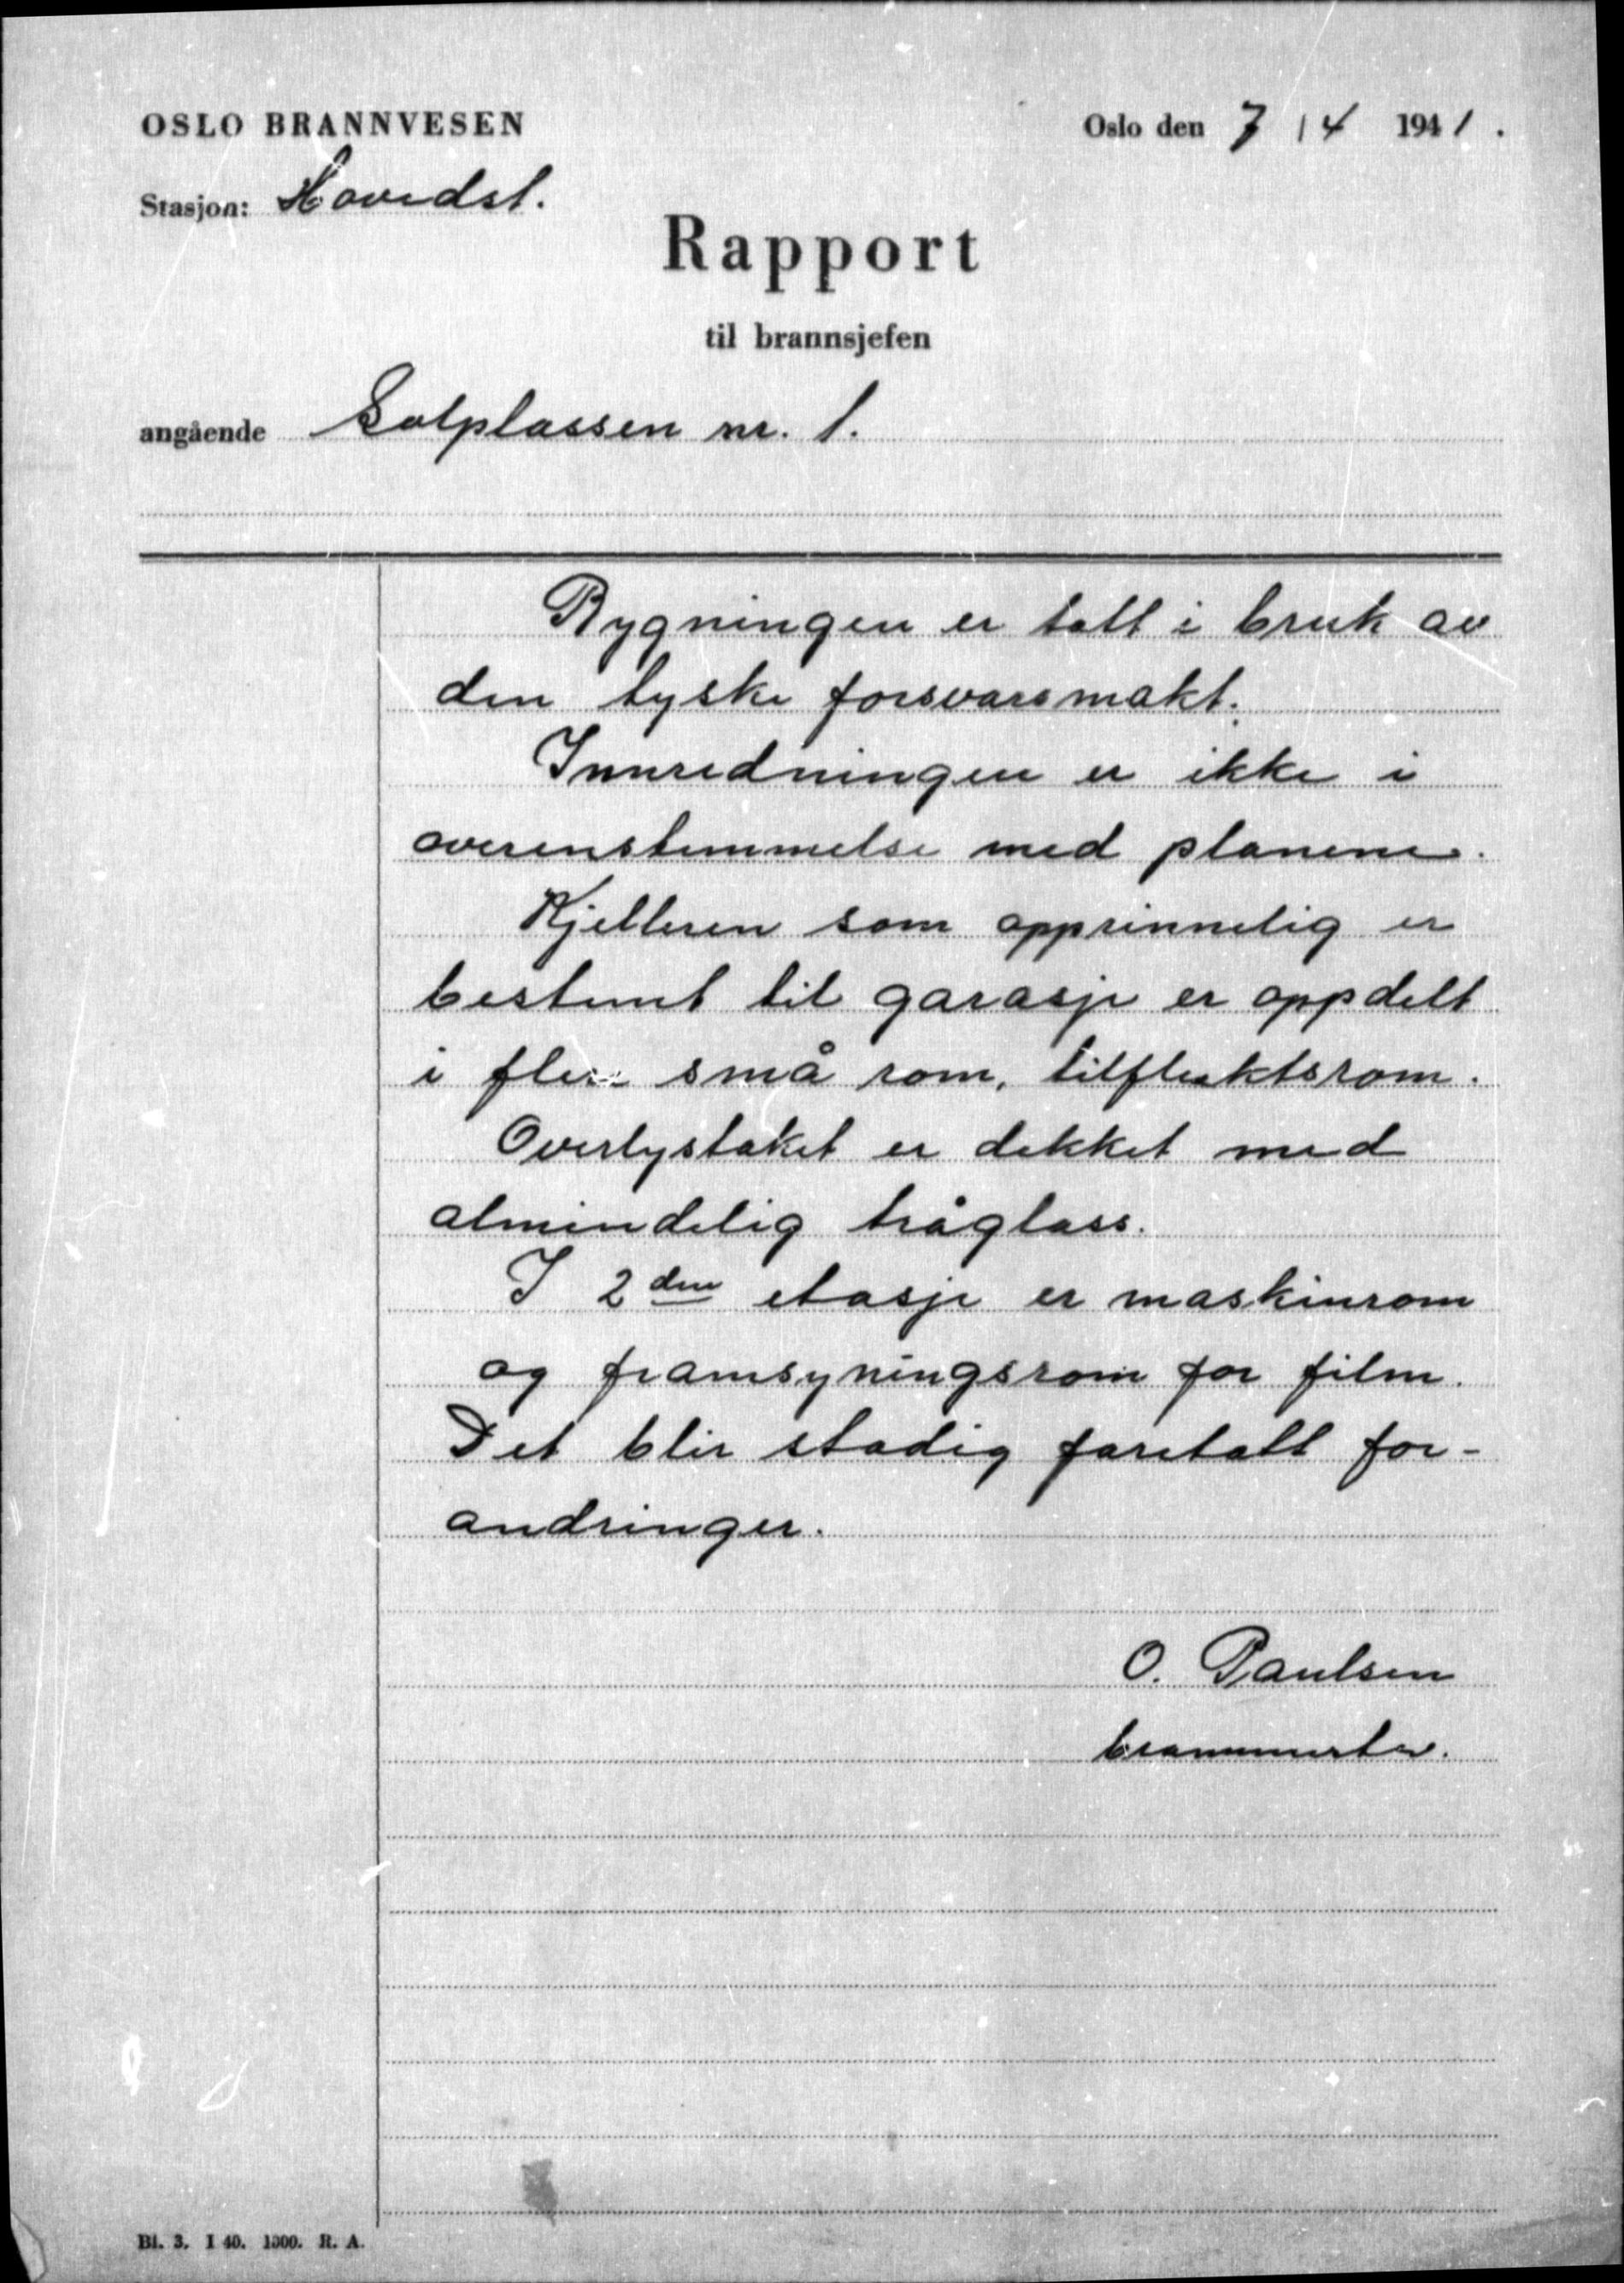 OSLO BRANNVESEN
Oslo den 7/4 1941.
Stasjon: Hovedst.
Rapport
til brannsjefen
angående Solplassen nr. 1.
Bygningen er tatt i bruk av
den tyske forsvarsmakt.
Innredningen er ikke i
overenstemmelse med planene.
Kjelleren som opprinnelig er
bestemt til garasje er oppdelt
i flere små rom, tilfluktsrom.
Overlystaket er dekket med
almindelig tråglass.
I 2den etasje er maskinrom
og framsyningsrom for film.
Det blir stadig foretatt for-
andringer.
O. Paulsen
brannmester.
Bl. 3. I 40. 1000. R. A.